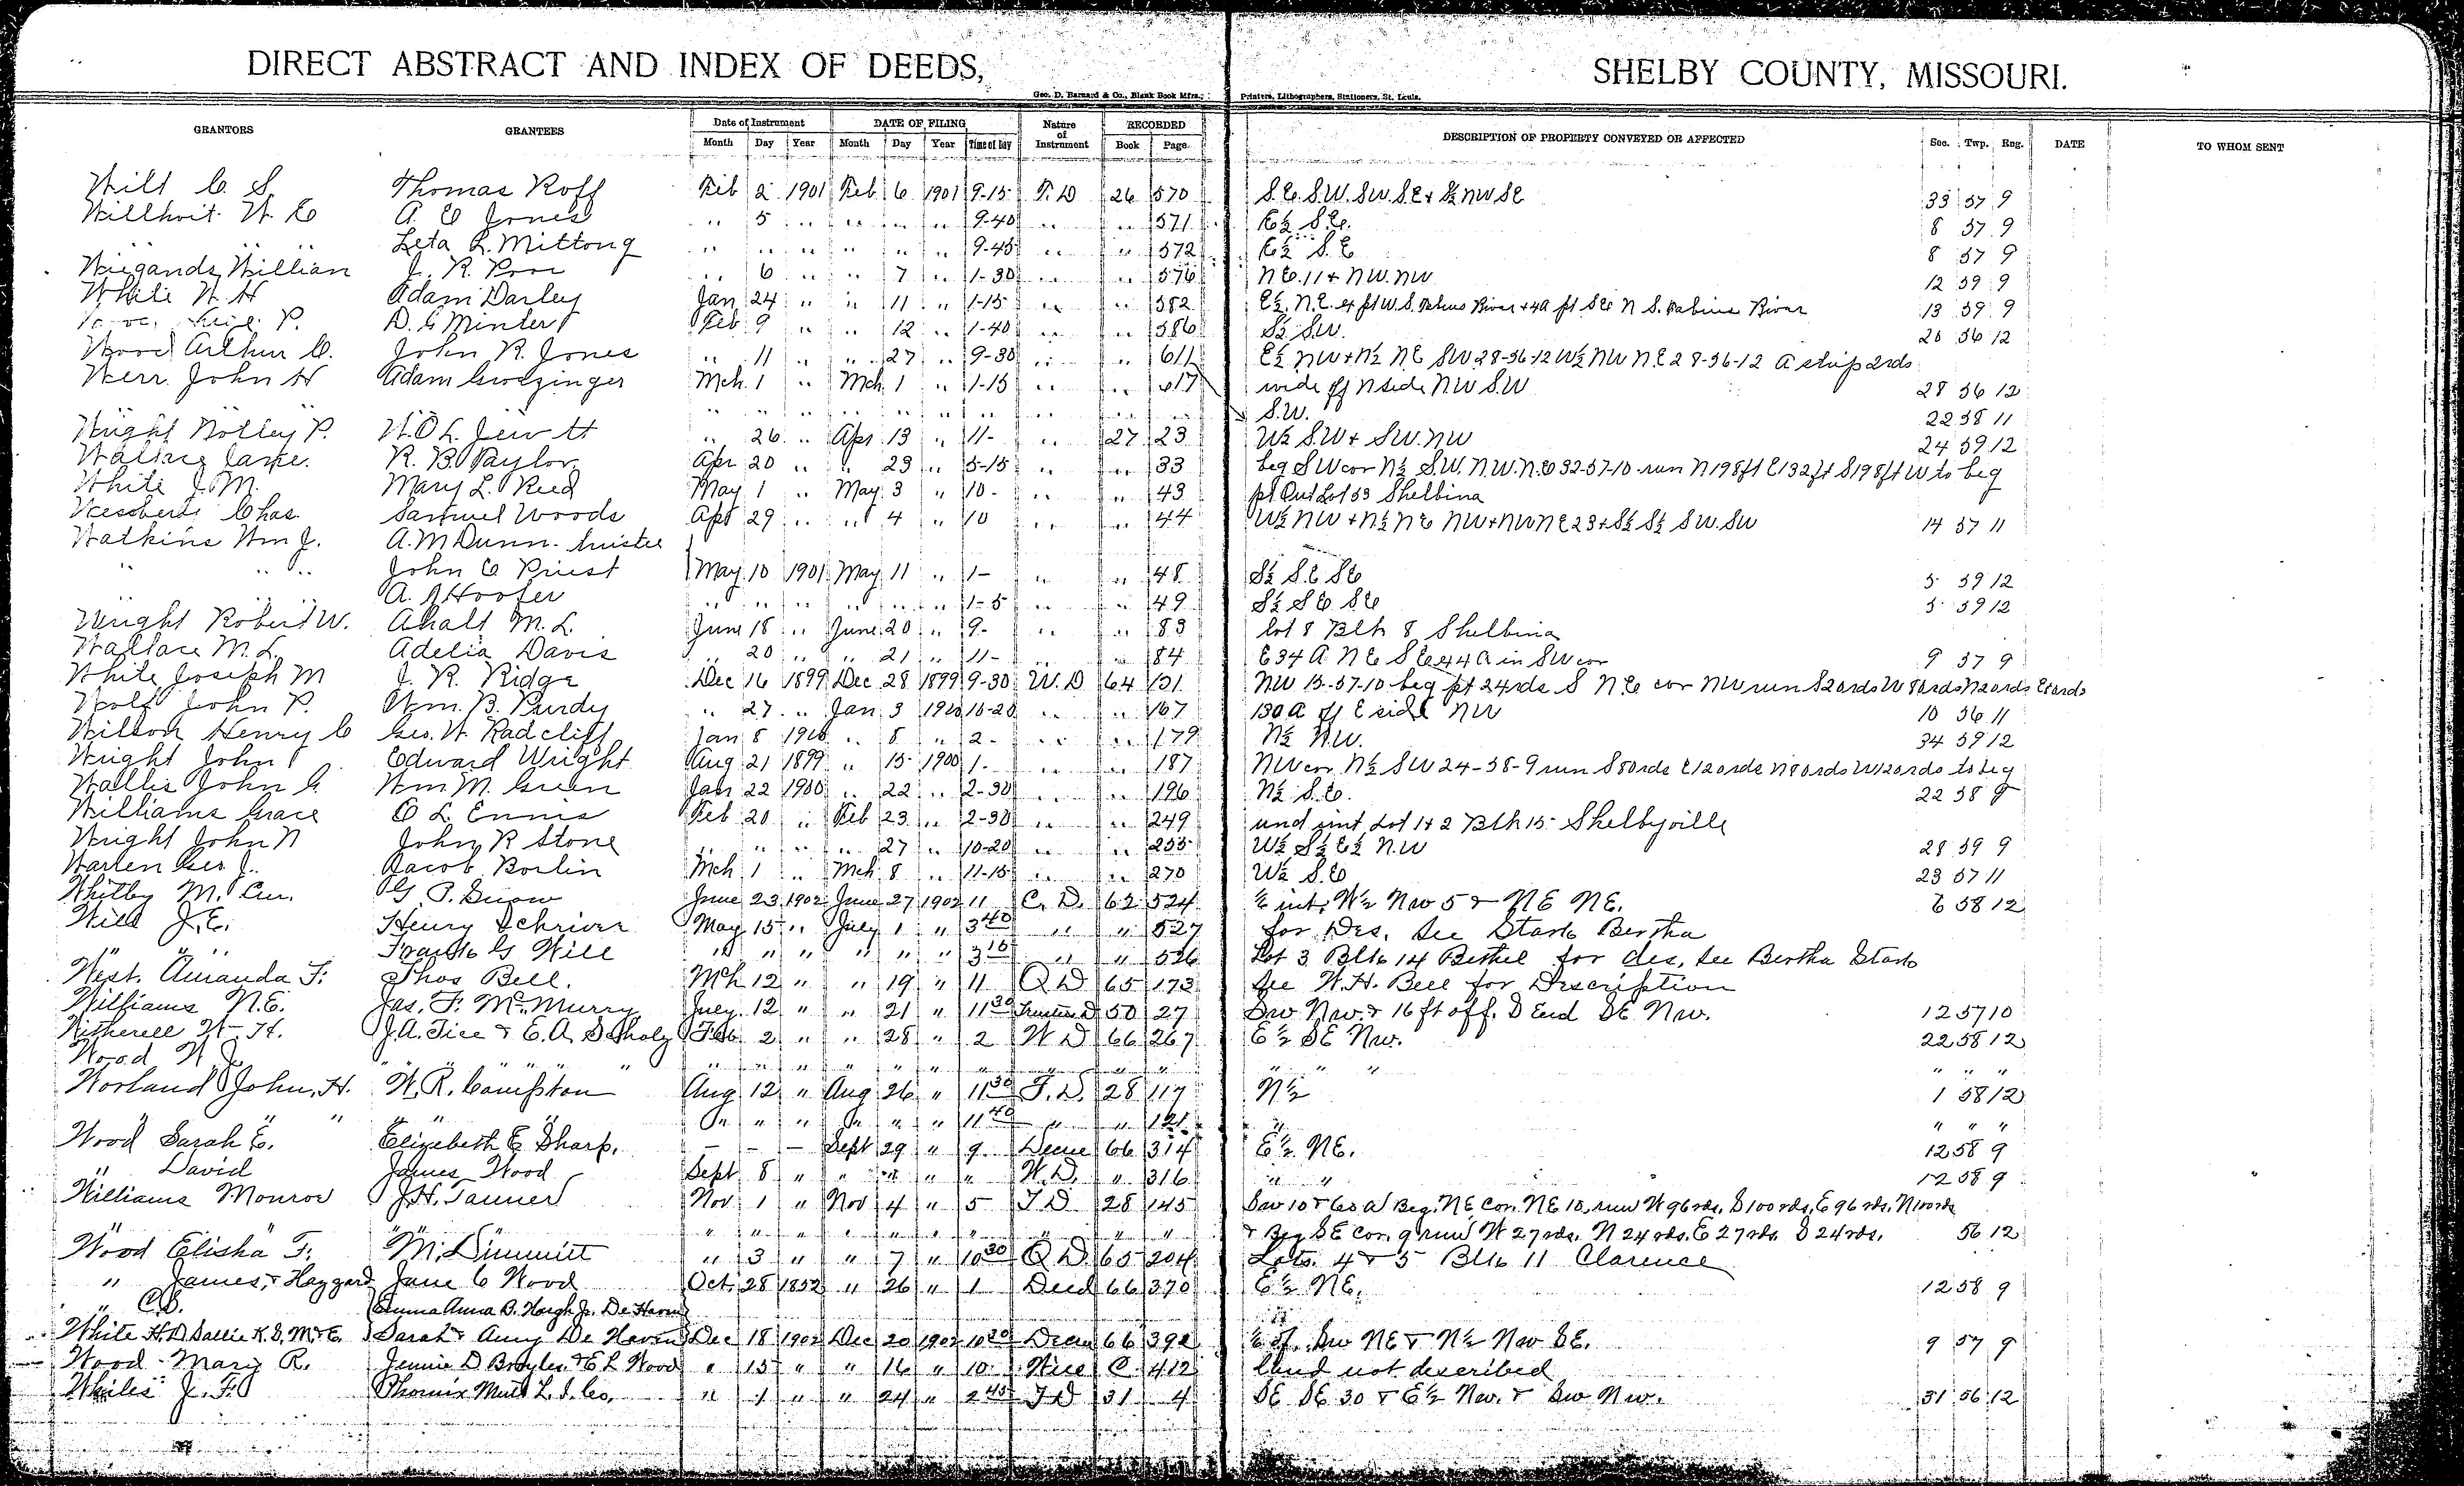 DIRECT ABSTRACT AND INDEX OF DEEDS, SHELBY COUNTY, MISSOURI.
Geo. D. Barnard & Co., Blank Book Mfrs., Printers, Lithographers, Stationers, St. Louis.
GRANTORS GRANTEES Date of Instrument DATE OF FILING Nature of Instrument RECORDED DESCRIPTION OF PROPERTY CONVEYED OR AFFECTED Sec. Twp. Rng. DATE TO WHOM SENT
Month Day Year Month Day Year Time of Day Book Page
Will C. S. Thomas Roff Feb 2 1901 Feb 6 1901 9-15 T. D 26 570 S.E. S.W. SW. S.E + S½ NW SE 33 57 9
Willhoit W. E A. E Jones " 5 " " " " 9-40 " " 571 E½ S.E. 8 57 9
" " Leta L. Mittong " " " " " " 9-45 " " 572 E½ S.E 8 57 9
Wiegands, William J. R. Poor " 6 " " 7 " 1-30 " " 576 N E. 11 + NW. NW 12 59 9
White W. H Adam Darley Jan 24 " " 11 " 1-15 " " 582 E½ N.E. River + 4A pt S E N S. River 13 59 9
P. D. C Minter Feb 9 " " 12 " 1-40 " " 586 S½ S.W. 20 56 12
Wood Arthur C. John R. Jones " 11 " " 27 " 9-30 " " 611 E½ NW + N½ NE SW 28-56-12 W½ NW N.E 28-56-12 A strip 2rds
Werr. John H Adam Mch. 1 " Mch. 1 " 1-15 " " 617 wide off N side NW S.W 28 56 12
" " " " " " " " " " S.W. 22 58 11
Wright P. W. O L. Jewett " 26 " Apr 13 " 11- " 27 23 W½ S.W + SW. NW 24 59 12
Wallace Jane. R. B. Taylor Apr 20 " " 23 " 5-15 " " 33 beg S W cor N½ S.W. N.W. N.E 32-57-10 run N 198 ft E 132 ft S 198 ft W to beg
White J. M. Mary L. Reed May 1 " May 3 " 10- " " 43 pt Out Lot 53 Shelbina
Chas. Samuel Woods Apr 29 " " 4 " 10 " " 44 W½ NW + N½ NE NW + NW NE 23 + S½ S½ SW. SW 14 57 11
Watkins Wm J. A. M Dunn. Trustee
" " " John C Priest May 10 1901 May 11 " 1- " " 48 S½ S.E SE 5 59 12
" " A. J Hoofer " " " " " " 1-5 " " 49 S½ S E. SE 5 59 12
Wright Robert W. Ahalt M. L. June 18 " June 20 " 9- " " 83 lot 8 Blk 8 Shelbina
Wallace M. L. Adelia Davis " 20 " " 21 " 11- " " 84 E 34 A N E S E 4 A in SW cor 9 57 9
White Joseph M J. R. Ridge Dec 16 1899 Dec 28 1899 9-30 W. D 64 131 NW 15-57-10 beg pt 24rds S N E cor NW run S 20rds W 80rds N 20rds E 80rds
Wolf John P. Wm. B. Purdy " 27 " Jan 3 1900 10-20 " " 167 130 A off E side NW 10 56 11
Wilson Henry C Geo. W. Radcliff Jan 8 1900 " 8 " 2- " " 179 N½ N.W. 34 59 12
Wright John Edward Wright Aug 21 1899 " 15 1900 1- " " 187 NW cor N½ SW 24-58-9 run S 80rds E 120rds N 80rds W 120rds to beg
Wallis John G. Wm M. Green Jan 22 1900 " 22 " 2-30 " " 196 N½ S.E. 22 58 9
Williams Grace E L. Ennis Feb 20 " Feb 23 " 2-30 " " 249 und int Lot 1 & 2 Blk 15 Shelbyville
Wright John N John R Stone " " " " 27 " 10-20 " " 255 W½ S½ E½ N.W 28 59 9
Warren Geo J. Jacob Borlin Mch 1 " Mch 8 " 11-15 " " 270 W½ S.E 23 57 11
Whitby M. Cur. G. P. Snow June 23 1902 June 27 1902 11 C. D. 62 524 ½ int. W½ Nw 5 & NE NE. 6 58 12
Will J. E. Henry Schriver May 15 " July 1 " 3 40 " " 527 for Des. See Stark Bertha
" " " Frank G Will " " " " " " 3 15 " " 526 Lot 3 Blk 14 Bethel for des, see Bertha Stark
West. Amanda F. Thos Bell. Mch 12 " " 19 " 11 Q D 65 173 See W. H. Bell for Description
Williams N. E. Jas. F. McMurry July 12 " " 21 " 11 30 Trustee D 50 27 Sw Nw. & 16 ft off. S End SE Nw. 12 57 10
Witherell W. H. J. A. Tice & E. A. Scholz Feb 2 " " 28 " 2 W D 66 267 E½ SE Nw. 22 58 12
Wood W J. " " " " " " " " " " " " " " " " " " "
Worland John, H. W. R. Compton Aug 12 " Aug 26 " 11 30 T. D. 28 117 N½ 1 58 12
" " " " " " " " " " " 11 40 " " 121 " " " "
Wood Sarah E. Elizebeth E Sharp. — — — Sept 29 " 9 Decree 66 314 E½ NE. 12 58 9
" David James Wood Sept 8 " " " " " W. D. " 316 " " 12 58 9
Williams Monroe J. H. Tanner Nov 1 " Nov 4 " 5 T D 28 145 Sw 10 & 60 a Beg. NE Cor. NE 15, run W 96 rds, S 100 rds, E 96 rds, N 100 rds
" " " " " " " " " " " " & Beg SE Cor. 9 run W 27 rds. N 24 rds. E 27 rds. S 24 rds. 56 12
Wood Elisha F. M. Dimmitt " 3 " " 7 " 10 30 Q D 65 204 Lots. 4 & 5 Blk 11 Clarence
" James, & Haggard Jane C Wood Oct. 28 1852 " 26 " 1 Deed 66 370 E½ NE. 12 58 9
" C. S. Emma Anna B. Hough Jr. De Haven
White H. D. Sallie K. S. M. & E. Sarah & Amy De Haven Dec 18 1902 Dec 20 1902 10 20 Decree 66 392 Sw NE & N½ Nw SE. 9 57 9
Wood Mary R. Jennie D Broyles & E L Wood " 15 " " 16 " 10 Will C 412 land not described
Whiles J. F. Phoenix Mut L. I. Co. " 1 " " 24 " 2 45 T D 31 4 SE SE 30 & E½ Nw. & Sw Nw. 31 56 12